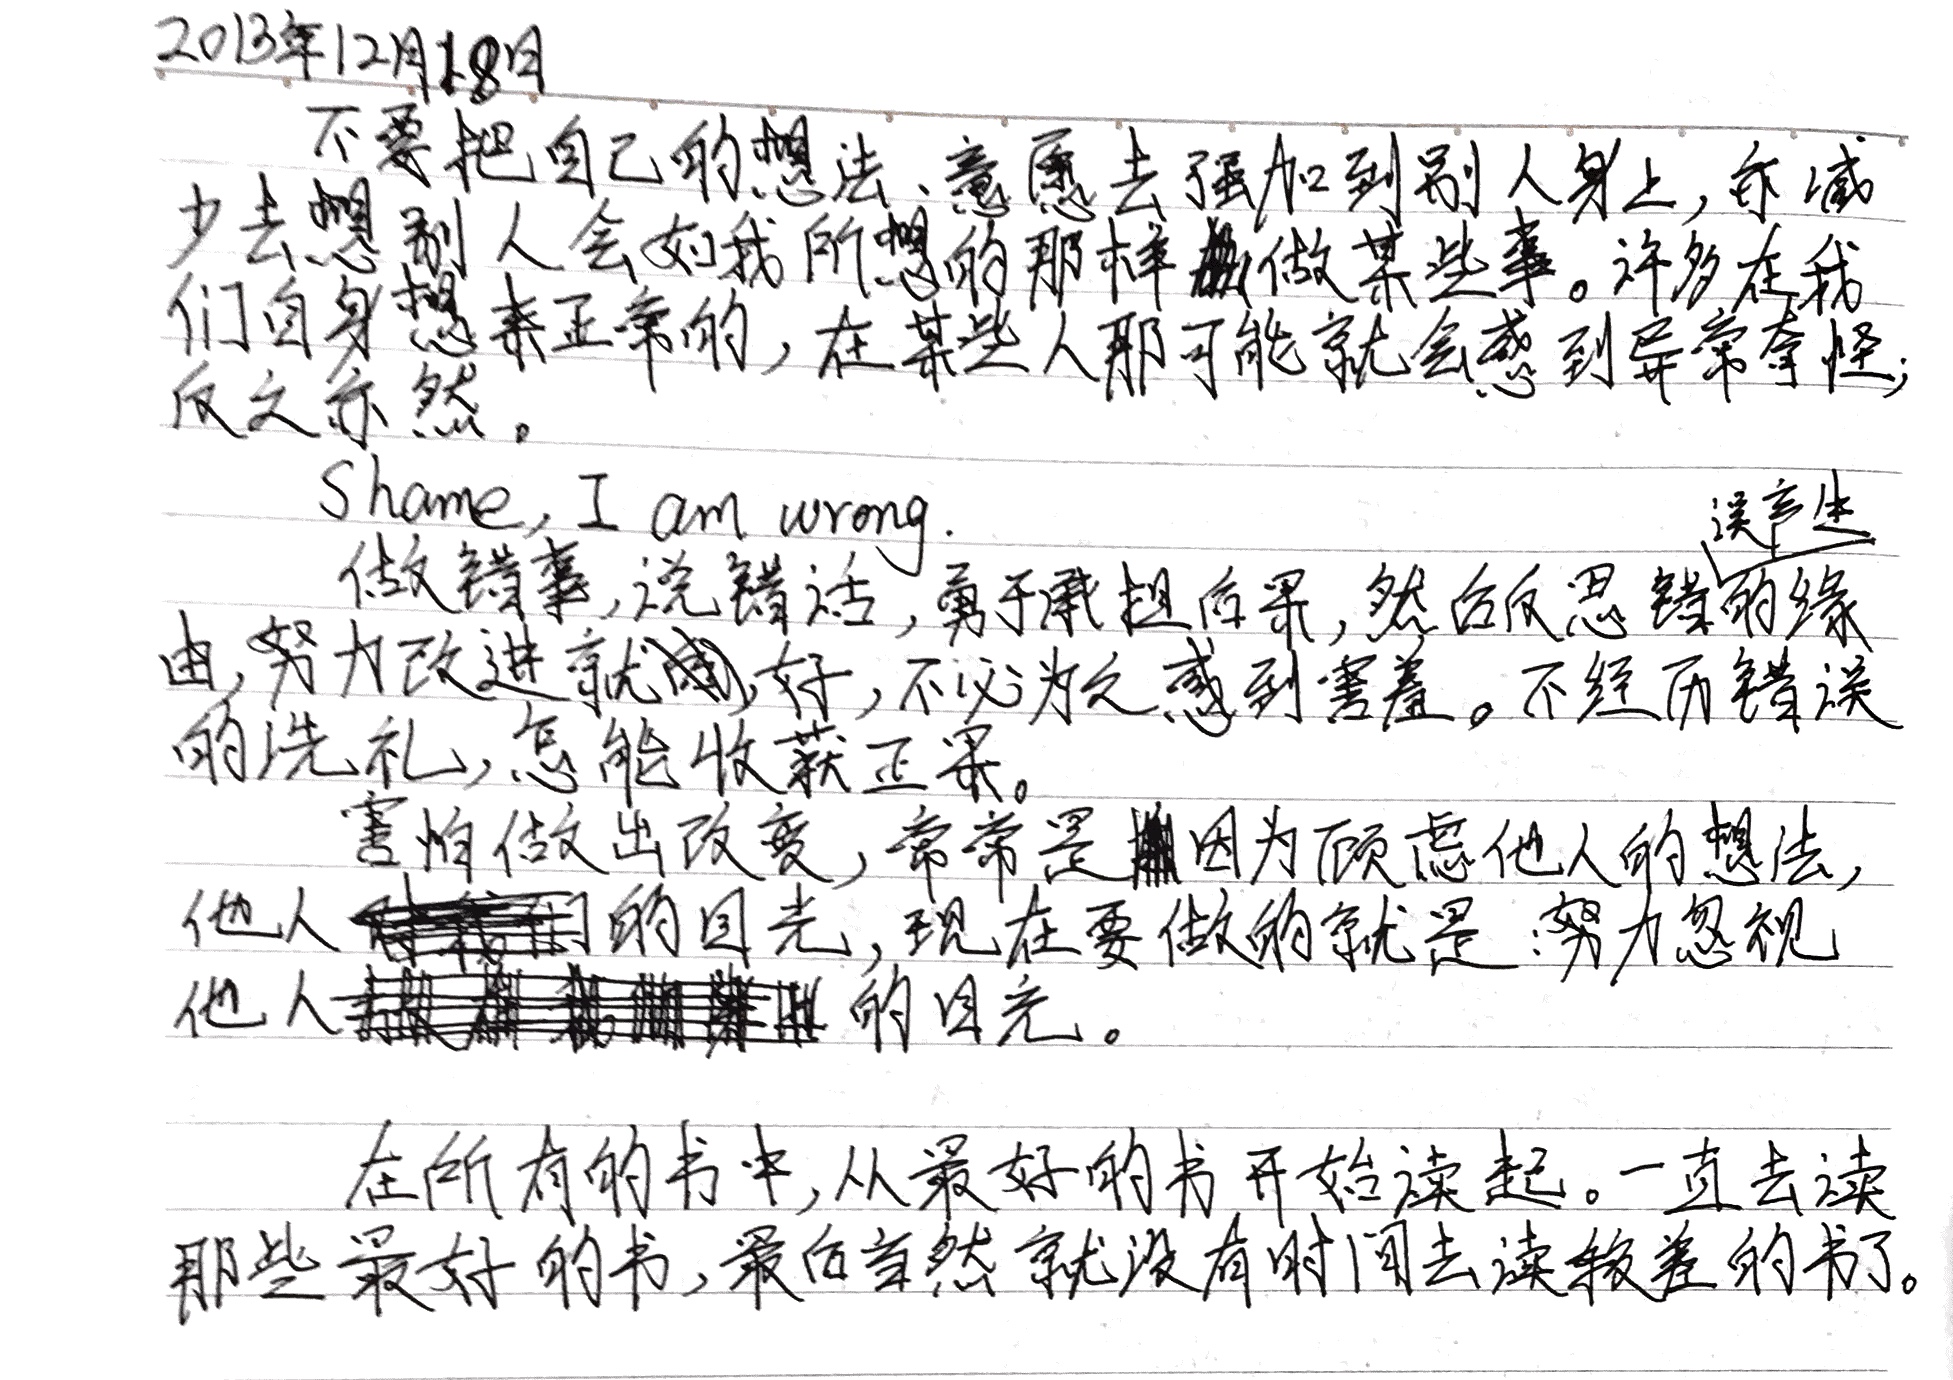 2013年12月18日
不要把自己的想法、意愿去强加到别人身上,亦减
少去想别人会如我所想的那样做某些事。许多在我
们自身想来正常的,在某些人那可能就会感到异常奇怪;
反之亦然。
Shame, I am wrong.
误产生
做错事,说错话,勇于承担后果,然后反思错的缘
由,努力改进就好,不必为之感到害羞。不经历错误
的洗礼,怎能收获正果。
害怕做出改变,常常是因为顾虑他人的想法,
他人的目光,现在要做的就是:努力忽视
他人的目光。
在所有的书中,从最好的书开始读起。一直去读
那些最好的书,最后自然就没有时间去读较差的书了。